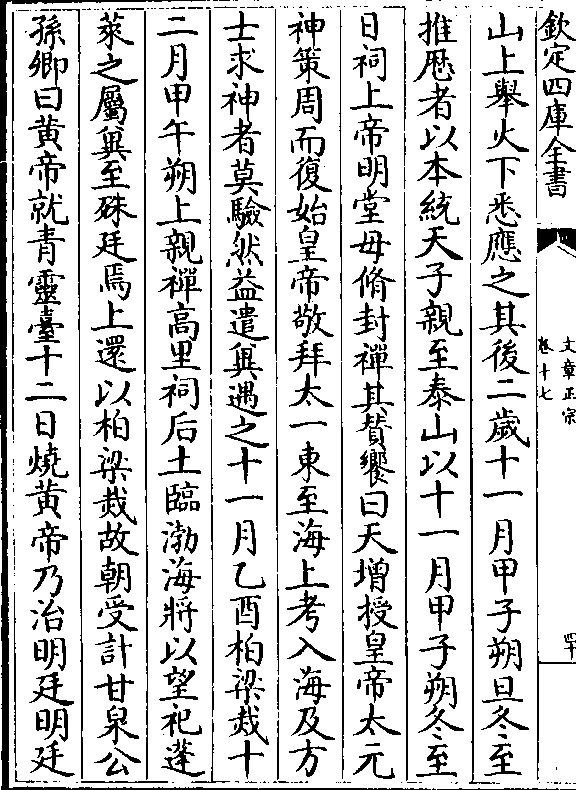 欽定四庫全書
文章正宗
卷十七
山上舉火下悉應之其後二歲十一月甲子朔旦冬至
推厯者以本統天子親至泰山以十一月甲子朔冬至
日祠上帝明堂毋脩封禪其贊饗曰天增授皇帝太元
神策周而復始皇帝敬拜太一東至海上考入海及方
士求神者莫驗然益遣兾遇之十一月乙酉柏梁烖十
二月甲午朔上親禪高里祠后土臨渤海將以望祀蓬
萊之屬兾至殊廷焉上還以柏梁烖故朝受計甘泉公
孫卿曰黄帝就青靈臺十二日燒黄帝乃治明廷明廷